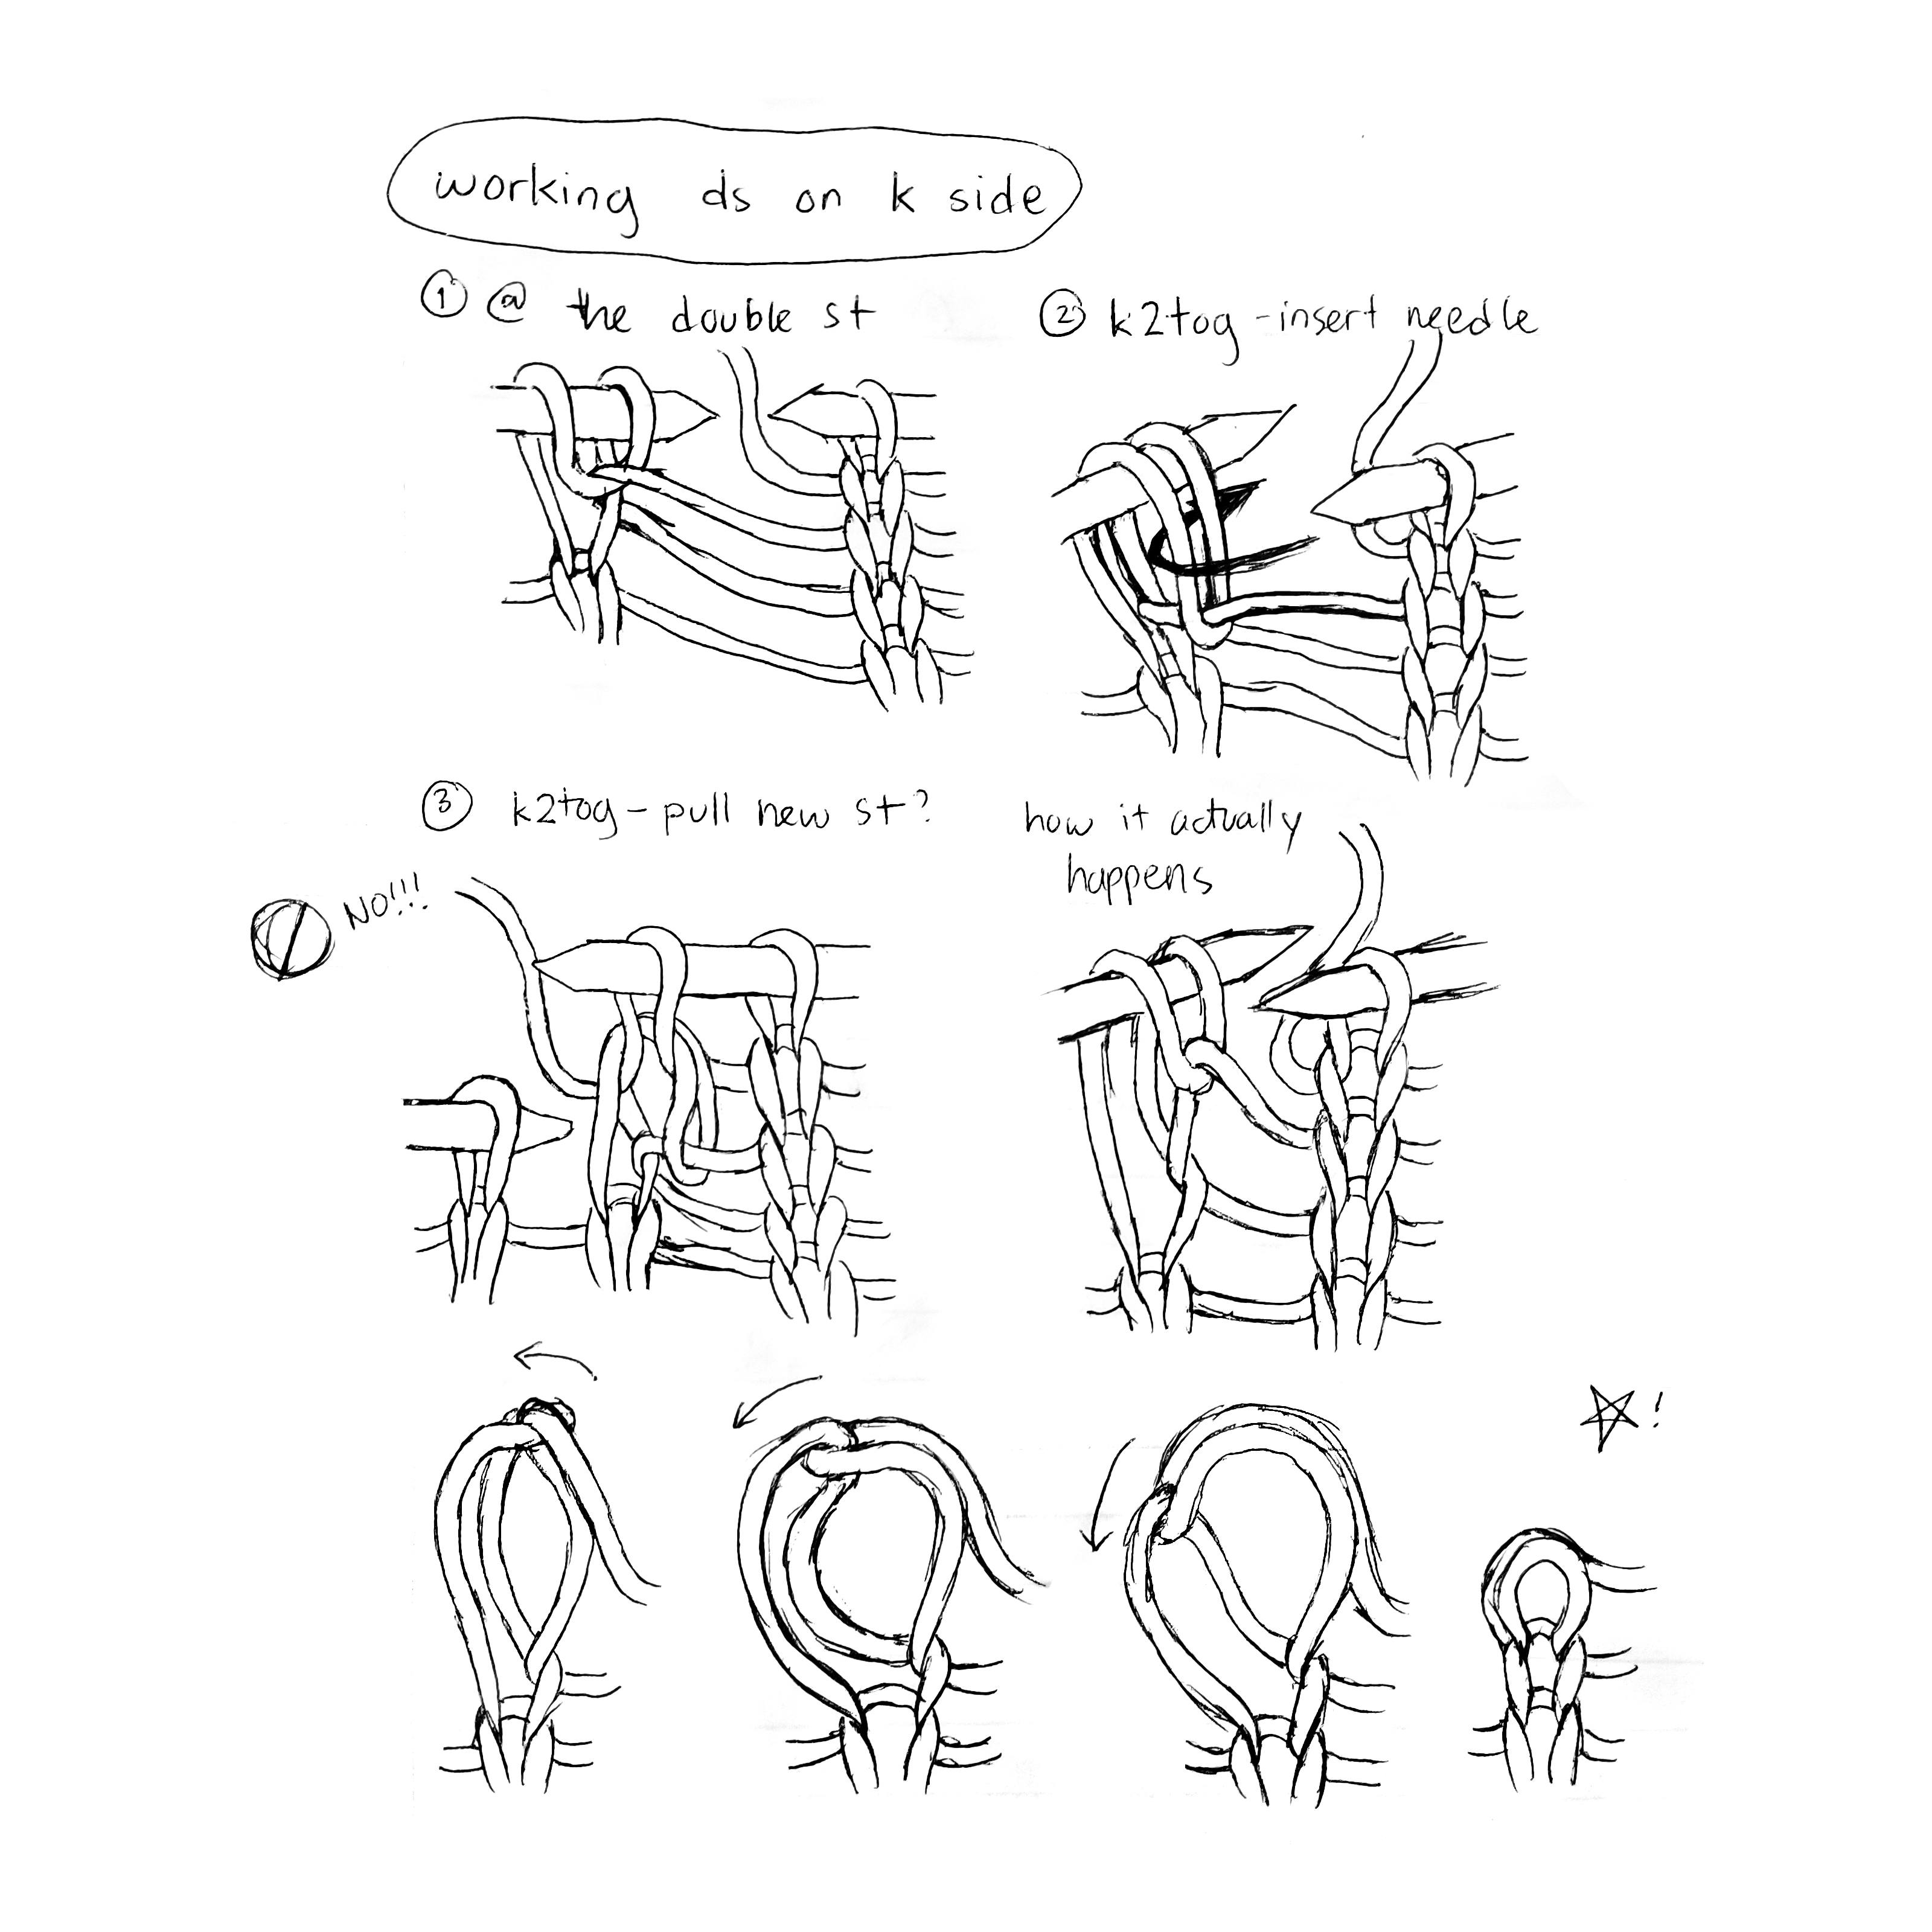 working ds on k side
① @ the double st
② k2tog - insert needle
③ k2tog - pull new st?
how it actually
happens
NO!!!
!